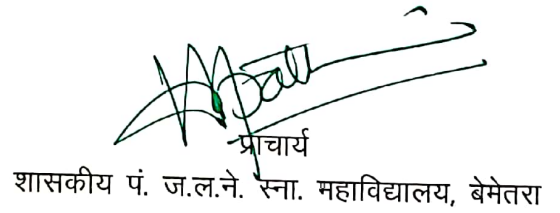 प्राचार्य
शासकीय पं. ज.ल.ने. स्ना. महाविद्यालय, बेमेतरा